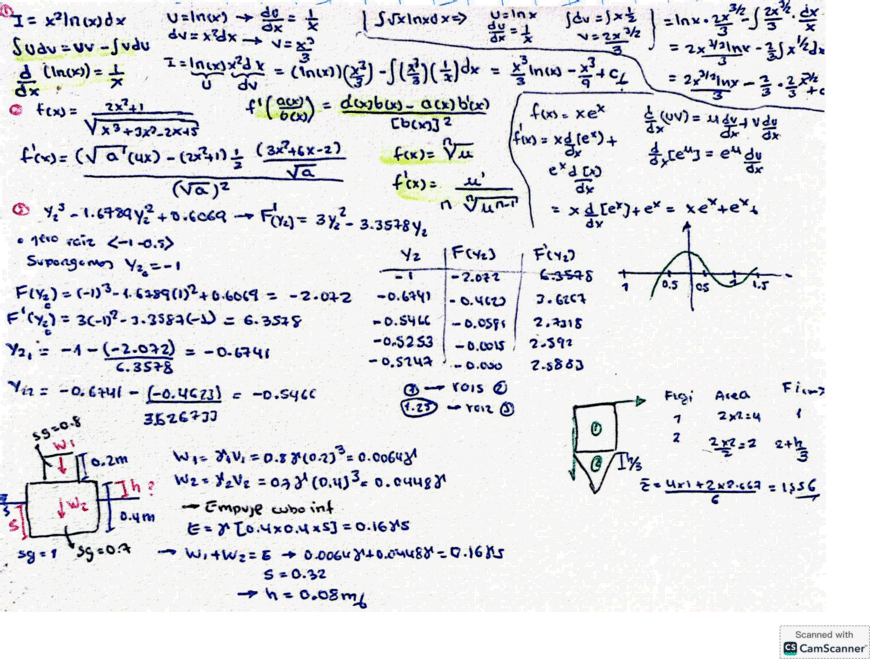 ① I = x² ln(x) dx
∫udv = uv - ∫vdu
d/dx (ln(x)) = 1/x
u = ln(x) → du/dx = 1/x
dv = x²dx → v = x³/3
I = ln(x) x² dx = (ln(x))(x³/3) - ∫(x³/3)(1/x)dx = x³/3 ln(x) - x³/9 + C
u dv
∫√x lnx dx ⇒ u = lnx ∫dv = ∫x^½
du/dx = 1/x v = 2x^3/2 / 3
= lnx · 2x^3/2 / 3 - ∫ 2x^3/2 / 3 · dx/x
= 2x^3/2 lnx / 3 - 2/3 ∫x^1/2 dx
= 2x^3/2 lnx / 3 - 2/3 · 2x^3/2 / 3 + c
② f(x) = 2x²+1 / √(x³+3x²-2x+5)
f'(a(x)/b(x)) = a'(x)b(x) - a(x)b'(x) / [b(x)]²
f'(x) = (√a (4x) - (2x²+1) ½ (3x²+6x-2)/√a) / (√a)²
f(x) = ⁿ√u
f'(x) = u' / n ⁿ√u^n-1
f(x) = xe^x
f'(x) = x d/dx [e^x] +
e^x d[x]/dx
= x d/dx [e^x] + e^x = xe^x + e^x
d/dx (uv) = u dv/dx + v du/dx
d/dx [e^u] = e^u du/dx
③ Y₂³ - 1.6789Y₂² + 0.6069 → F'(Y₂) = 3Y₂² - 3.3578Y₂
• 1era raiz <-1 -0.5>
Supongamos Y₂₀ = -1
F(Y₂)₀ = (-1)³ - 1.6789(1)² + 0.6069 = -2.072
F'(Y₂)₀ = 3(-1)² - 3.3587(-1) = 6.3578
Y₂₁ = -1 - (-2.072)/6.3578 = -0.6741
Y₂₂ = -0.6741 - (-0.4623)/3.626733 = -0.5466
Y₂ F(Y₂) F'(Y₂)
-1 -2.072 6.3578
-0.6741 -0.4623 3.6267
-0.5466 -0.0591 2.7318
-0.5253 -0.0015 2.592
-0.5247 -0.000 2.5883
① → rais ②
1.25 → raiz ③
1 0.5 0.5 1 1.5
sg=0.8
W₁
0.2m
h?
W₂
S
0.4m
sg=1 sg=0.7
W₁ = γ₁V₁ = 0.8γ(0.2)³ = 0.0064γ
W₂ = γ₂V₂ = 0.7γ(0.4)³ = 0.0448γ
→ Empuje cubo inf
E = γ[0.4x0.4xS] = 0.16γS
→ W₁+W₂=E → 0.0064γ+0.0448γ = 0.16γS
S = 0.32
→ h = 0.08m
① ②
h/3
Figi Area
1 2x2=4 1
2 2x2/2 = 2 2+h/3
= 4x1+2x2.667 / 6 = 1.556
Scanned with
CS CamScanner